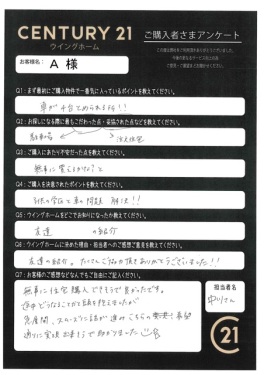 CENTURY 21
ウイングホーム
ご購入者さまアンケート
お客様名：
A 様
Q1：まず最初にご購入物件で一番気に入っているポイントを教えてください。
車が4台とめられる所!!
Q2：お探しになる際に最もこだわった点・妥協された点などを教えてください。
駐車場
Q3：ご購入にあたり不安だった点を教えてください。
無事に買えるかなこと
Q4：ご購入を決意されたポイントを教えてください。
Q5：ウイングホームをどこでお知りになったか教えてください。
友達の紹介
Q6：ウイングホームに決めた理由・担当者へのご感想ご意見を教えてください。
友達の紹介。たいへんご協力頂きありがとうございました!!
Q7：お客様のご感想などなんでもご自由にご記入ください。
無事に住宅購入できそうで良かったです。
途中どうなることかと頭を抱えましたが
見学間、スムーズに話が進みこちらの要求・希望
通りに実現出来そうで助かりました
担当者名
中川さん
C21